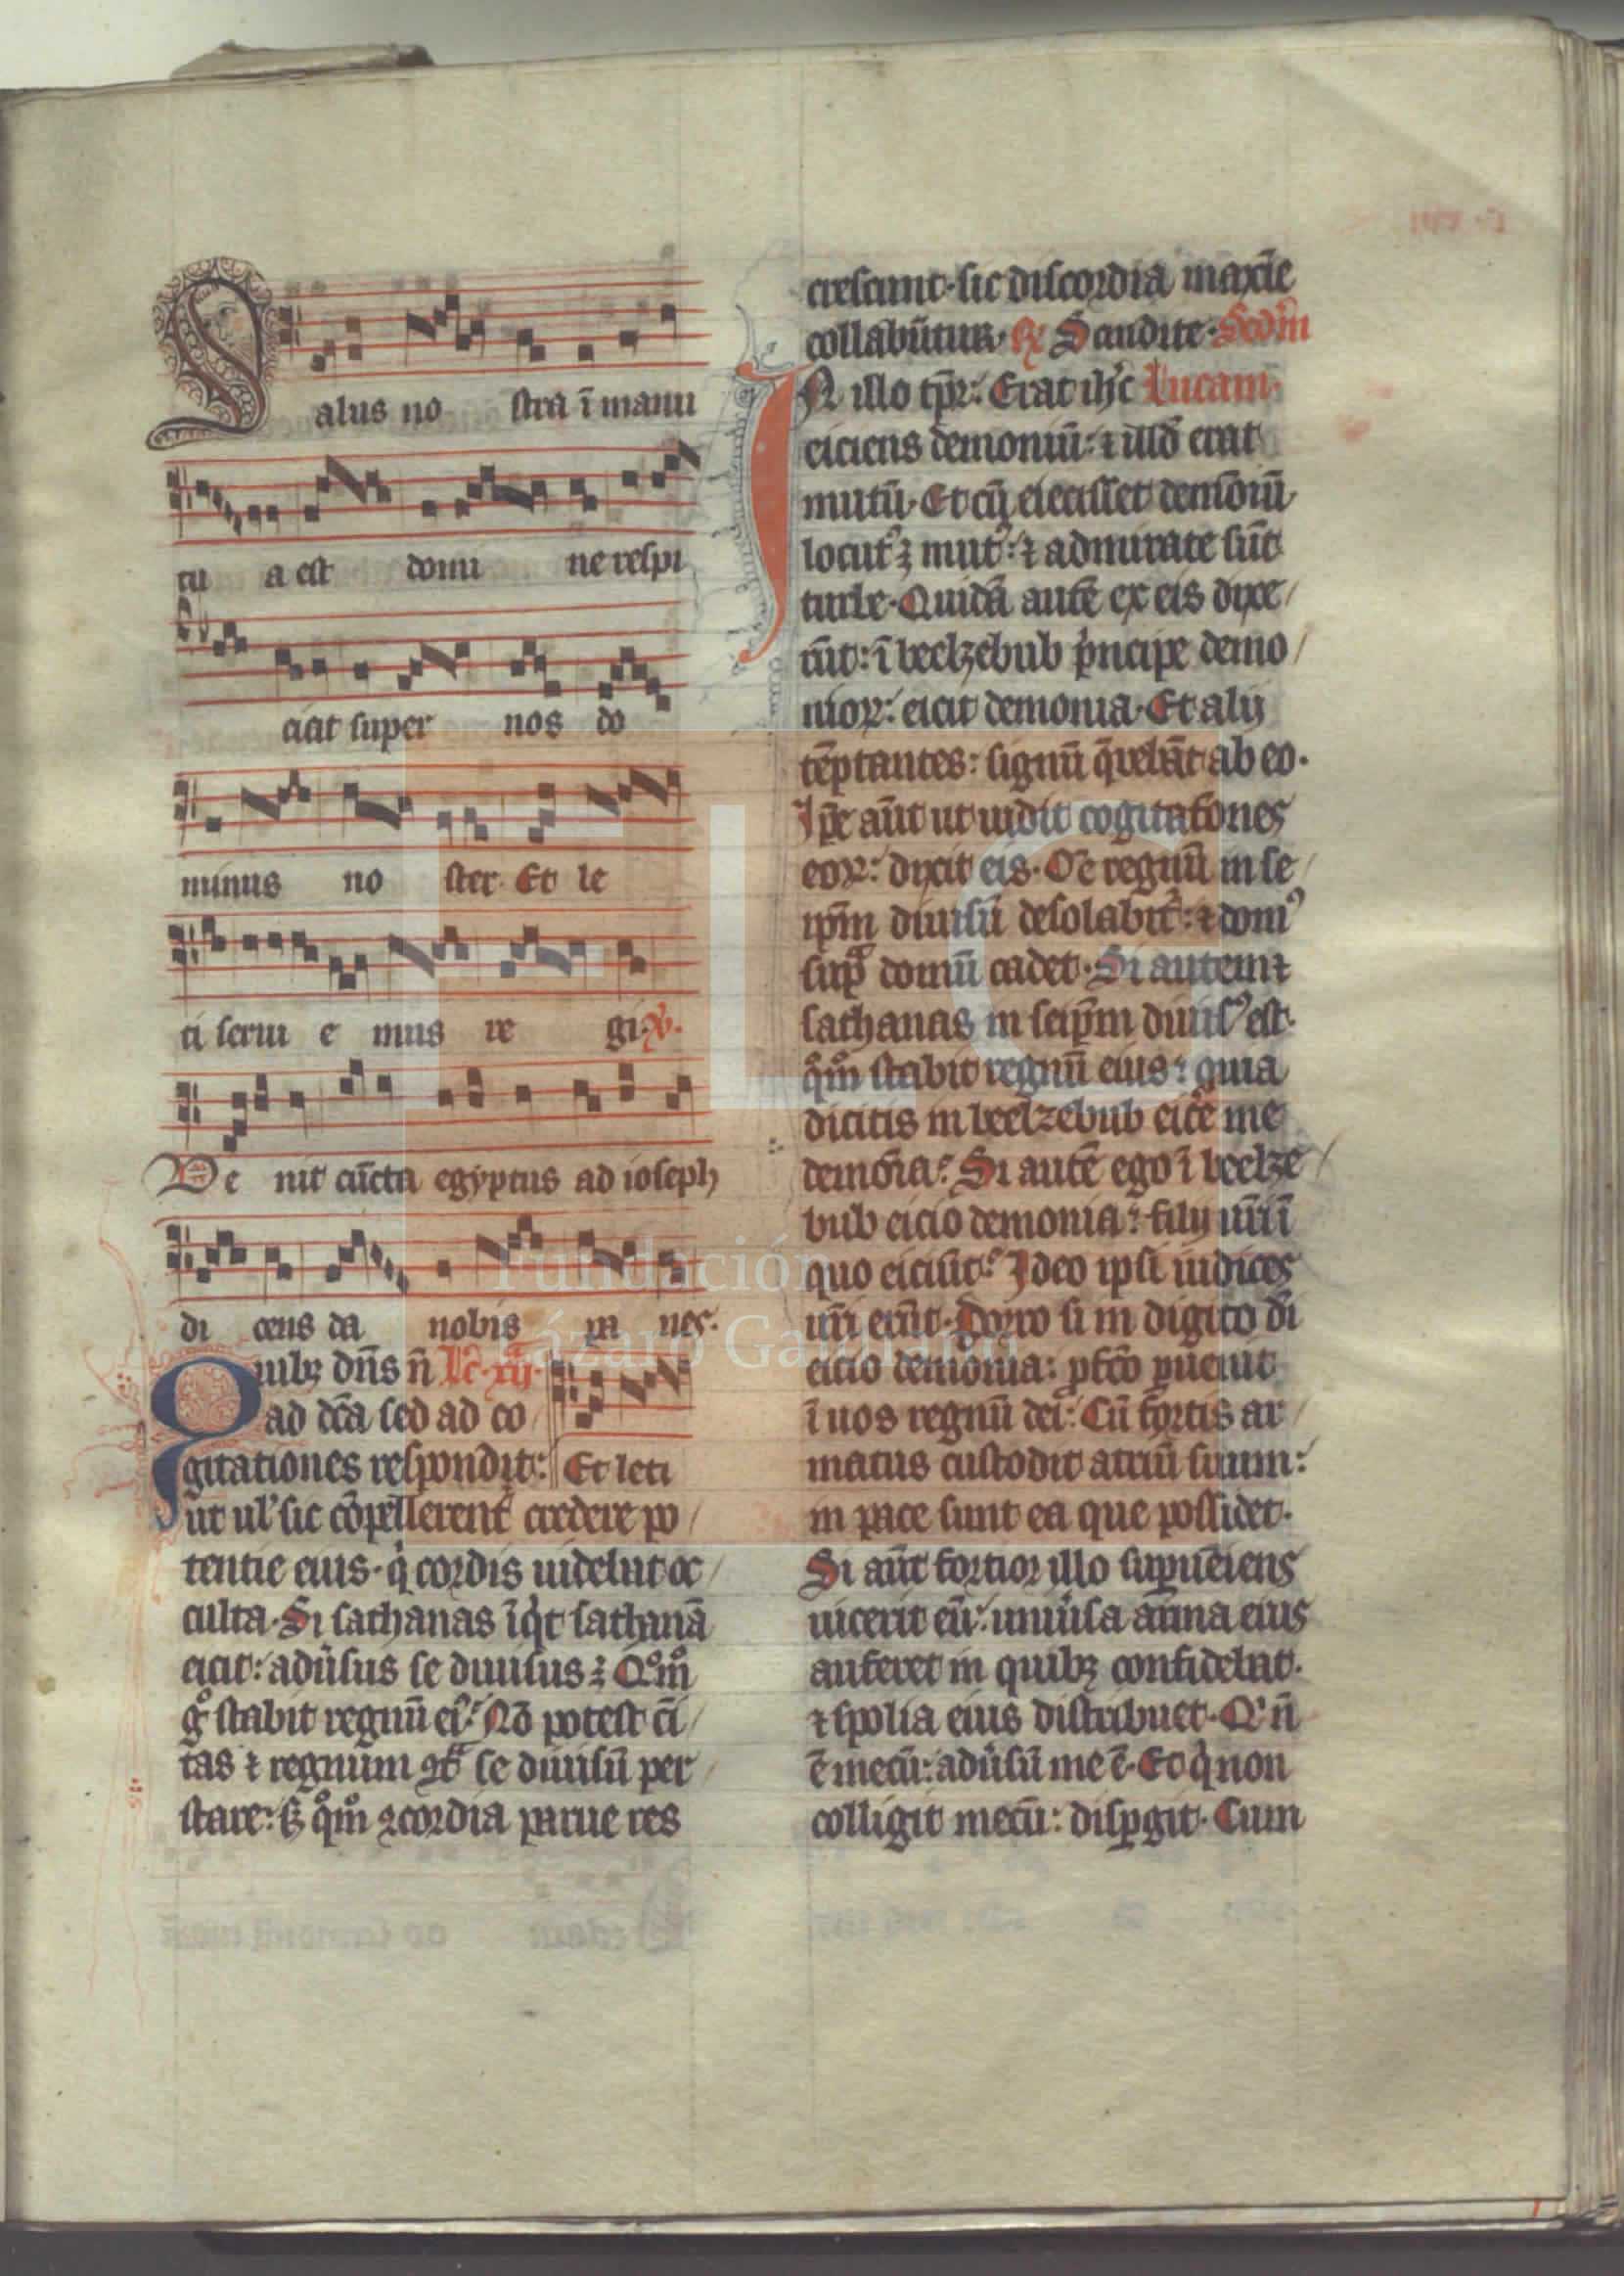 Salus no stra ī manu
tu a est domi ne respi
ciat super nos do
minus no ster. Et le
ti serui e mus re gi. ℣.
Ve nit cūcta egyptus ad ioseph
di cens da nobis pa nes.
Quibꝫ dn̄s n̄ Lc̄. xij.
ad dc̄a sed ad co
gitationes respondit: Et leti
ut ul' sic cōpellerent᷑ credere po
tentie eius. q̇ cordis uidebat oc
culta. Si sathanas īq̇t sathanā
eicit: adūsus se diuisus ꝫ. Qͦmͦ
gͦ stabit regnū eiꝰ. Nō potest cī
tas ⁊ regnum ꝯtͣ se diuisū per
stare: s̄ qͦmͦ ꝯcordia parue res
crescunt. sic discordia maxīe
collabūtur. ℞ Sandite. Scd'm
IN illo tp̄r: Erat ih'c Lucam.
eiciens demoniū: ⁊ illd̄ erat
mutū. Et cū eiecisset demōiū
locutꝰ ꝫ mutꝰ: ⁊ admirate sūt
turbe. Quidā autē ex eis dixe
rūt: ī beelzebub p̍ncipe demo
nioꝝ: eicit demonia. Et alij
tēptantes: signū q̄rebāt ab eo.
Ip̄e aūt ut uidit cogitatōnes
eoꝝ: dixit eis. Oē regnū in se
ip̄m diuisū desolabit᷑: ⁊ domꝰ
supͣ domū cadet. Si autem ⁊
sathanas in seip̄m diuisꝰ est.
qͦmͦ stabit regnū eius: quia
dicitis in beelzebub eic̄e me
demōia: Si autē ego ī beelze
bub eicio demonia: filij ur̄i ī
quo eiciūt: Ideo ipsi iudices
ur̄i erūt. Porro si in digito dī
eicio demonia: ꝓfc̄o ꝑuenit
ī uos regnū dei: Cū fortis ar
matus custodit atriū suum:
in pace sunt ea que possidet.
Si aūt fortior illo suꝑueniens
uicerit eū: uniūsa arma eius
auferet in quibꝫ confidebat.
⁊ spolia eius distribuet. Q̍ n̄
ē mecū: adūsū me ē. Et q̍ non
colligit mecū: disꝑgit. Cum
FLG
Fundación
Lázaro Galdiano